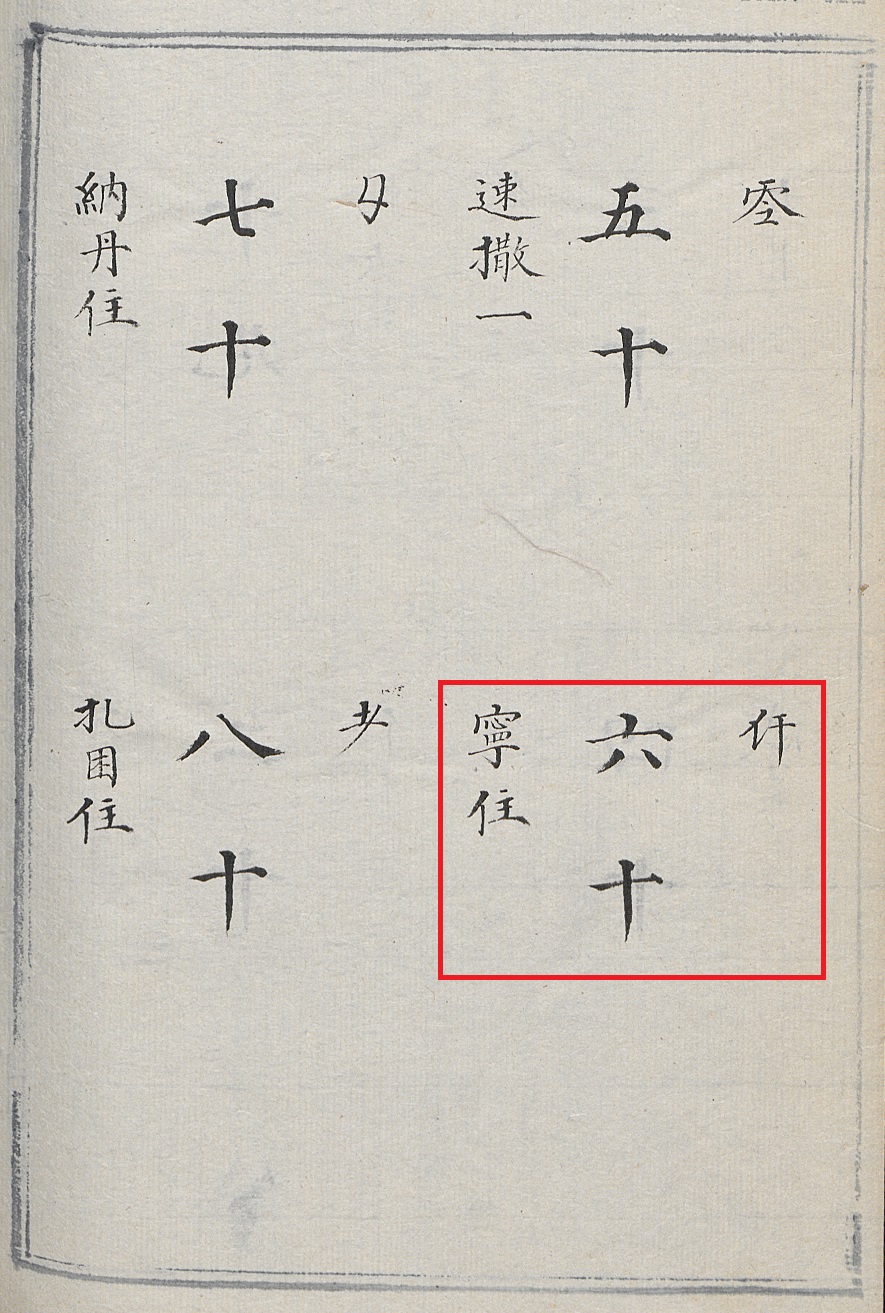 五十
速撒一
六十
寧住
七十
納丹住
八十
扎困住